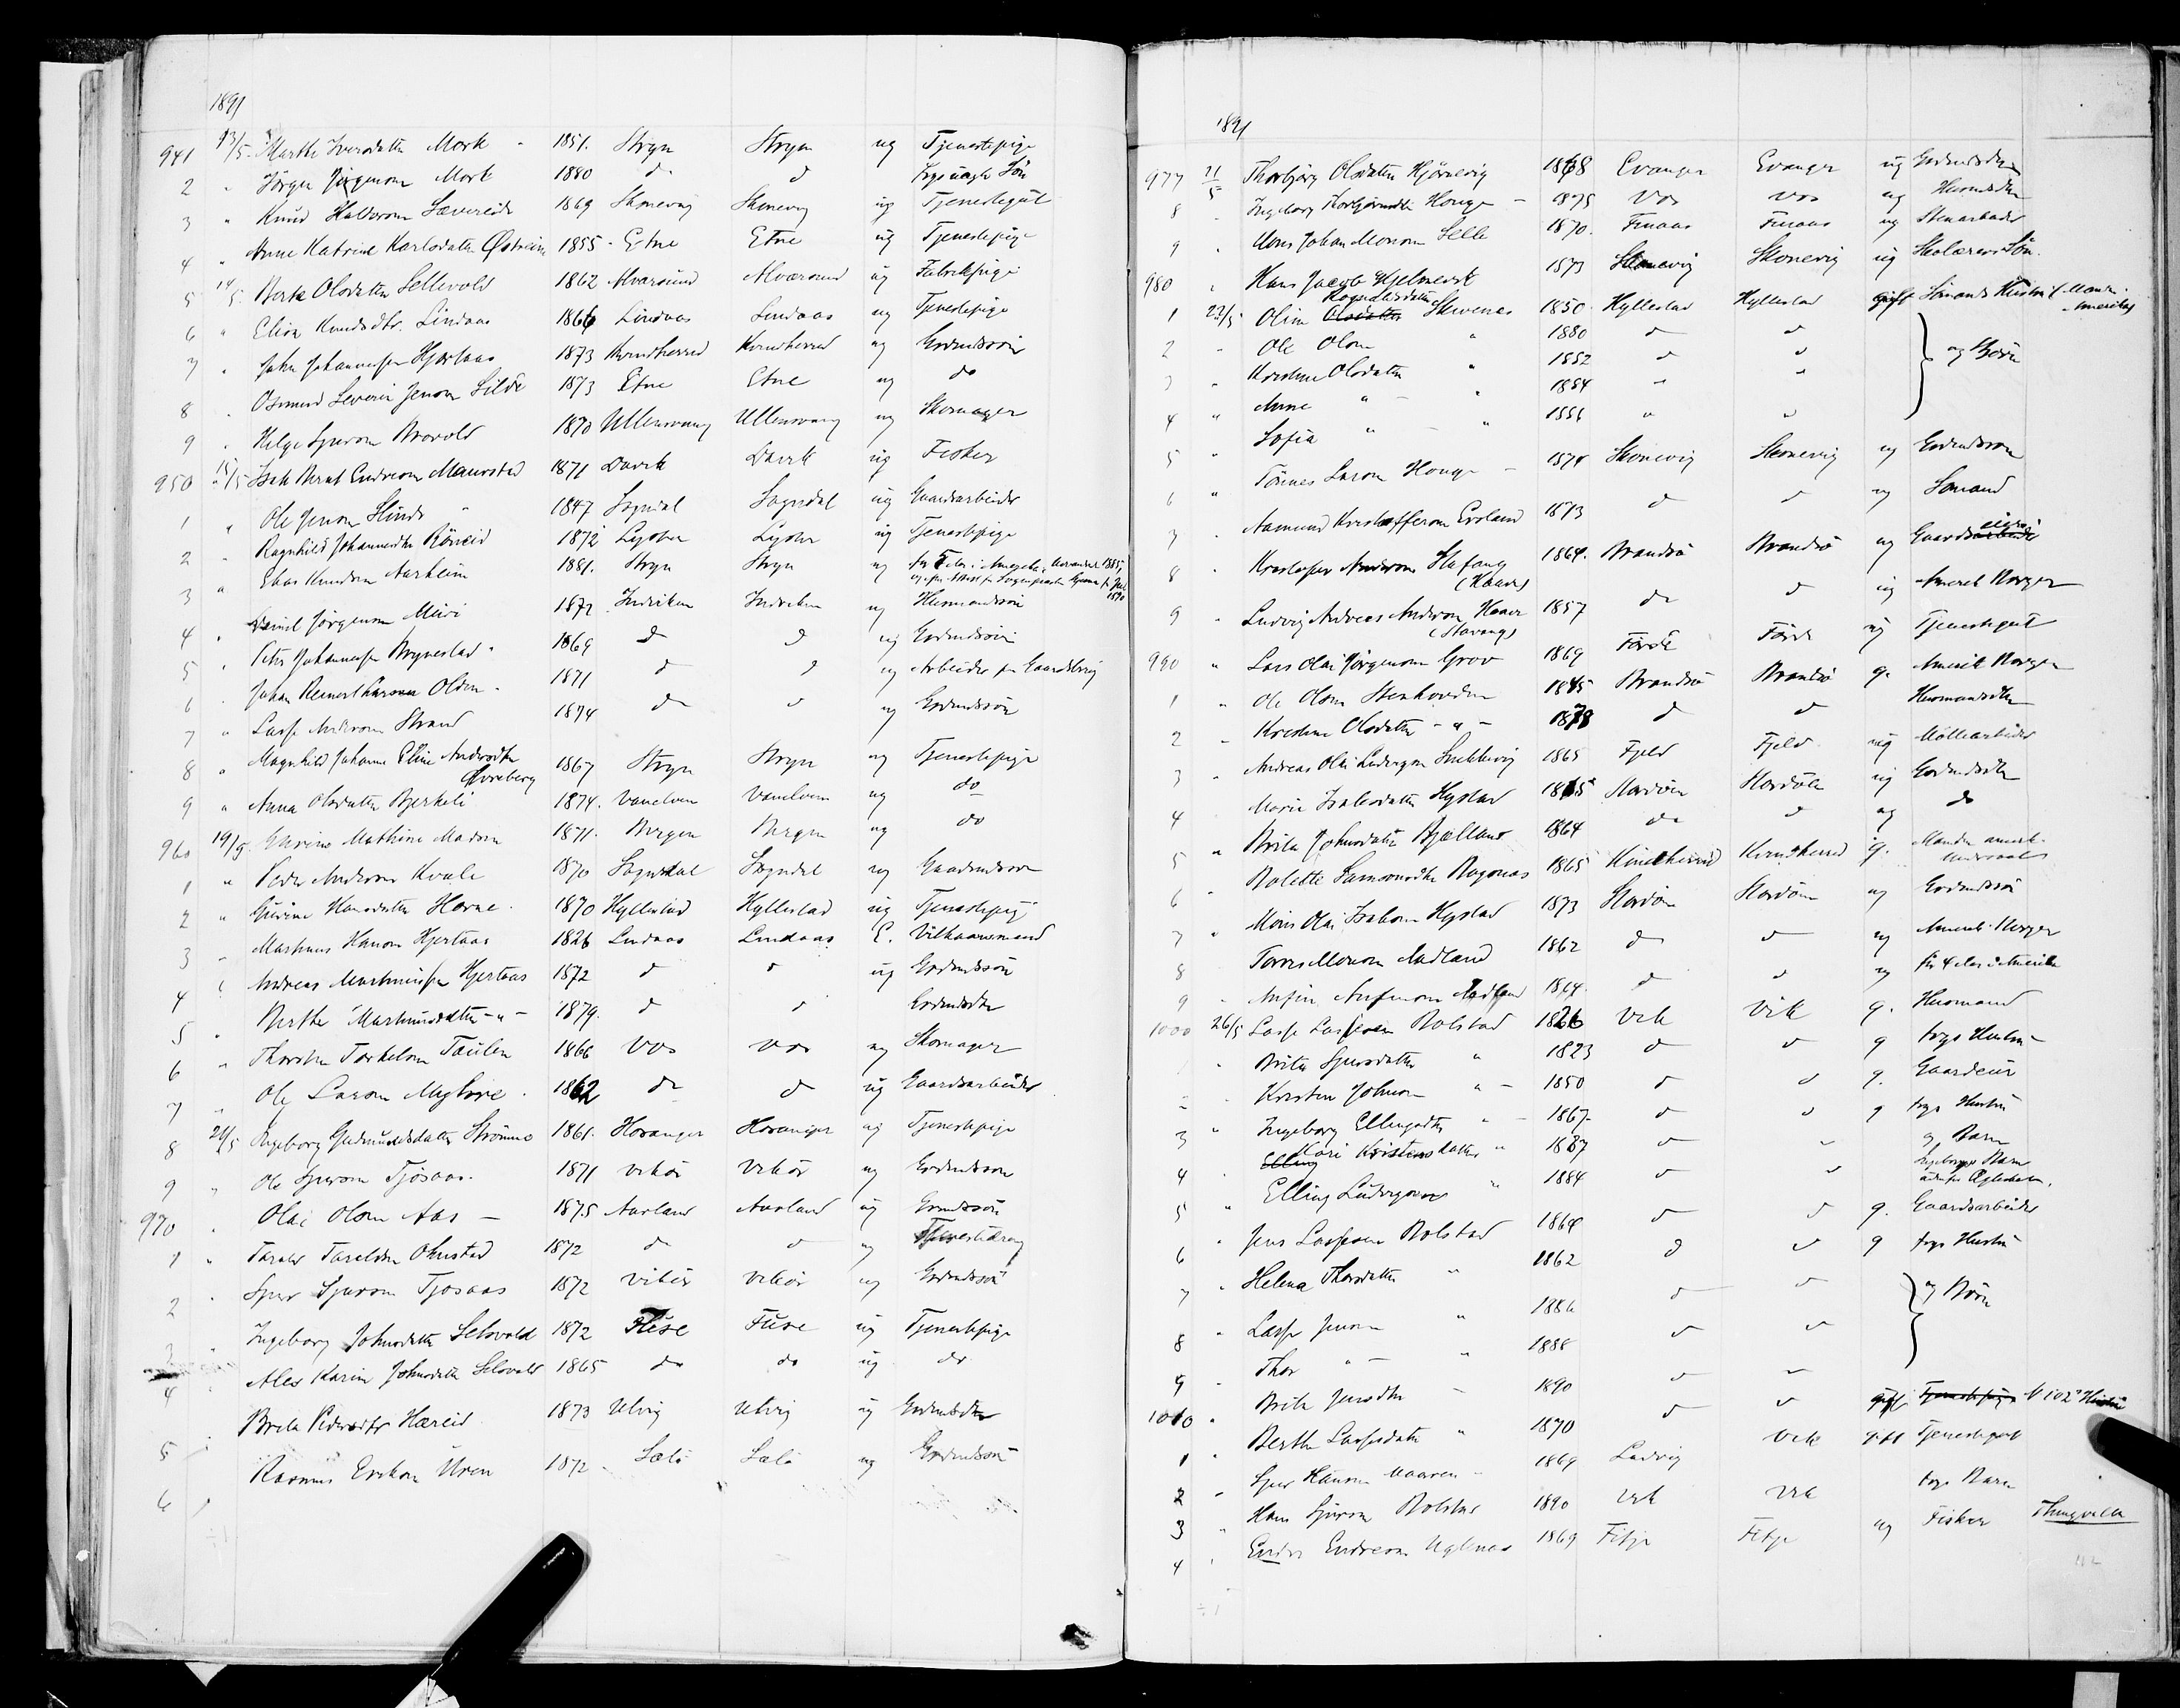 1891
941 13/5 Marthe Iversdatter Mork 1851. Stryn Stryn ug Tjenestepige
2 " Jørgen Jørgensen Mork 1880 do d Søn
3 " Knud Halvorsen Sævereide 1869 Skonevig Skonevig ug Tjenestegut
4 " Anne Katrine Karlsdatter Østrein 1855 Etne Etne ug Tjenestepige
5 14/5 Berte Olsdatter Sellevold 1862 Alvarsund Alvarsund ug Fabrikpige
6 " Elisa Knudsdtr. Lindaas 1866 Lindaas Lindaas ug Tjenestepige
7 " John Johannessen Hjortaas 1873 Kvindherred Kvindherred ug Gaardmdssøn
8 " Osmund Severin Jenson Silde 1873 Etne Etne ug do
9 " Helge Sjurson 1870 Ullensvang Ullensvang ug Skomager
950 15/5 Isak Bernt Endreson Maurstad 1871 Davik Davik ug Fisker
1 " Ole Jenson Slinde 1847 Sogndal Sogndal ug Gaardsarbeider
2 " Ragnhild Johannesdtr Røneid 1872 Lyster Lyster ug Tjenestepige
3 " Elias Knudson Aarheim 1881. Stryn Stryn ug
4 " Daniel Jørgenson Muri 1872 Indviken Indviken ug Husmandssøn
5 " Peter Johannessen Brynestad 1869 d d ug Gaardmdssøn
6 " Johan Reinert Larsen Olden 1871 d d ug Arbeider paa Gaardsbrug
7 " Lasse Anderson Strand 1874 do d ug Gaardmdssøn
8 " Magnhild Johanne Eline Andersdtr Øvreberg 1867 Stryn Stryn ug Tjenestepige
9 " Anna Olsdatter Bjerkeli 1874. Vanelven Vanelven ug do
960 19/5 Gurine Mathine Madsen 1871. Bergen Bergen ug do
1 " Peder Anderson Kvale 1870 Sogndal Sogndal ug Gaardmdssøn
2 " Gurine Hansdatter Horne 1870 Hyllestad Hyllestad ug Tjenestepige
3 " Martinus Hanson Hjertaas 1826 Lindaas Lindaas E. Vilkaarsmand
4 " Andreas Martinussen Hjertaas 1872 d d ug Gaardmdssøn
5 " Berthe Martinusdatter -"- 1879. d d Gaardmdsdtr
6 " Thorsten Torkelson Taulen 1866 Vos Vos ug Skomager
7 " Ole Larson 1862 do d ug Gaardsarbeider
8 20/5 Ingeborg Gudmundsdatter Strømme 1861. Hosanger Hosanger ug Tjenestepige
9 " Ole Sjurson Tjosaas 1871 Vikør Vikør ug Gaardmdssøn
970 " Olai Olson Aas 1875 Aurland Aurland ug Grmdssøn
1 " Tarald Taraldson Ohnstad 1872 do d ug Tjenestedreng
2 " Sjur Sjurson Tjosaas 1872 Vikør Vikør ug Gaardmdssøn
3 " Ingeborg Johnsdatter Selsvold 1872 Fuse Fuse ug Tjenestepige
4 " Ales Karine Johnsdatter Selsvold 1865 do do ug do
5 " Brita Pedersdtr Hæreid 1873 Ulvig Ulvig ug Gaardmdsdtr
6 " Rasmus Erikson Uren 1872 Sælø Sælø ug Gaardmdssøn
1891
977 21/5 Thorbjørg Olsdatter Hjørnevig 1868 Evanger Evanger ug Gaardmdsdtr
8 " Ingeborg Thorbjørnsdtr Houge 1875 Vos Vos ug Husmdsdtr
9 " Mons Johan Monson Selle 1870. Finaas Finaas ug Stenarbeider
980 " Hans Jacob Hjelmevik 1873 Skonevig Skonevig ug Skolærers Søn
1 22/5 Oline Olsdatter Skivenes 1850 Hyllestad Hyllestad gift Sømands Hustru (Manden i Amerika)
2 " Ole Olson " 1880 d d
3 " Kristine Olsdatter " 1882 d d } og Børn
4 " Anne " " 1884 " "
5 " Sofia " " 1886 " "
6 " Tønnes Larson Houge 1874 Skonevig Skonevig ug Gaardmdssøn
7 " Aamund Kristofferson Evsland 1873 d d ug Sømand
8 " Kristofer Anderson Stafang 1864. Brandsø Brandsø ug Gaardseier
9 " Ludvig Andreas Anderson Haaver (Stavang) 1857 do d ug Amerik. Borger
990 " Lars Olai Jørgenson Grov 1869 Førde Førde ug Tjenestegut
1 " Ole Olson Stenhovden 1845 Brandsø Brandsø g. Amerik Borger
2 " Kristine Olsdatter -"- 1878 d d Husmandsdtr
3 " Andreas Olai Ludvigson Snekkevig 1865 Fjeld Fjeld ug Møllearbeider
4 " Marie Isaksdatter Hystad 1865 Stordøen Stordøen ug Gaardmdsdtr
5 " Brita Johnsdatter Bjelland 1864 do d ug do
6 " Bolette Samsonsdtr Bogsnes 1865 Kvindherred Kvindherred g. Manden amerik. Undersaat
7 " Mons Olai Isakson Hystad 1873 Stordøen Stordøen ug Gaardmdssøn
8 " Torres Monson Aadland 1862 d d ug Amerik. Borger
9 " Anfin Anfinson Aadland 1864. d d ug
1000 26/5 Lasse Lassesen Bolstad 1826 Vik Vik g. Husmand
1 " Brita Sjursdatter " 1823 d d g dogs Hustru
2 " Kristen Johnson " 1850 d d g. Gaardeier
3 " Ingeborg Ellingsdtr " 1867. d d g dogs Hustru
4 " Kari Kristensdatter " 1887 d d og Barn
5 " Elling Ludvigson " 1884 d d Ingeborgs Barn
6 " Jens Lassesen Bolstad 1864 d d g. Gaardsarbeider
7 " Helena Thorsdatter " 1862 d d g dogs Hustru
8 " Lasse Jenson " 1886 d d } og Børn
9 " Thor " " 1888 d d
1010 " Brita Jensdtr " 1890 d d
1 " Berthe Lassesdatter " 1870 d d gift Hustru
2 " Sjur Hanson Maaren 1869 Ladvig Vik gift Tjenestegut
3 " Hans Sjurson Bolstad 1890 Vik Vik dogs Barn
4 " Endre Endreson Uglenes 1869 Fitje Fitje ug Fisker Thingvalla